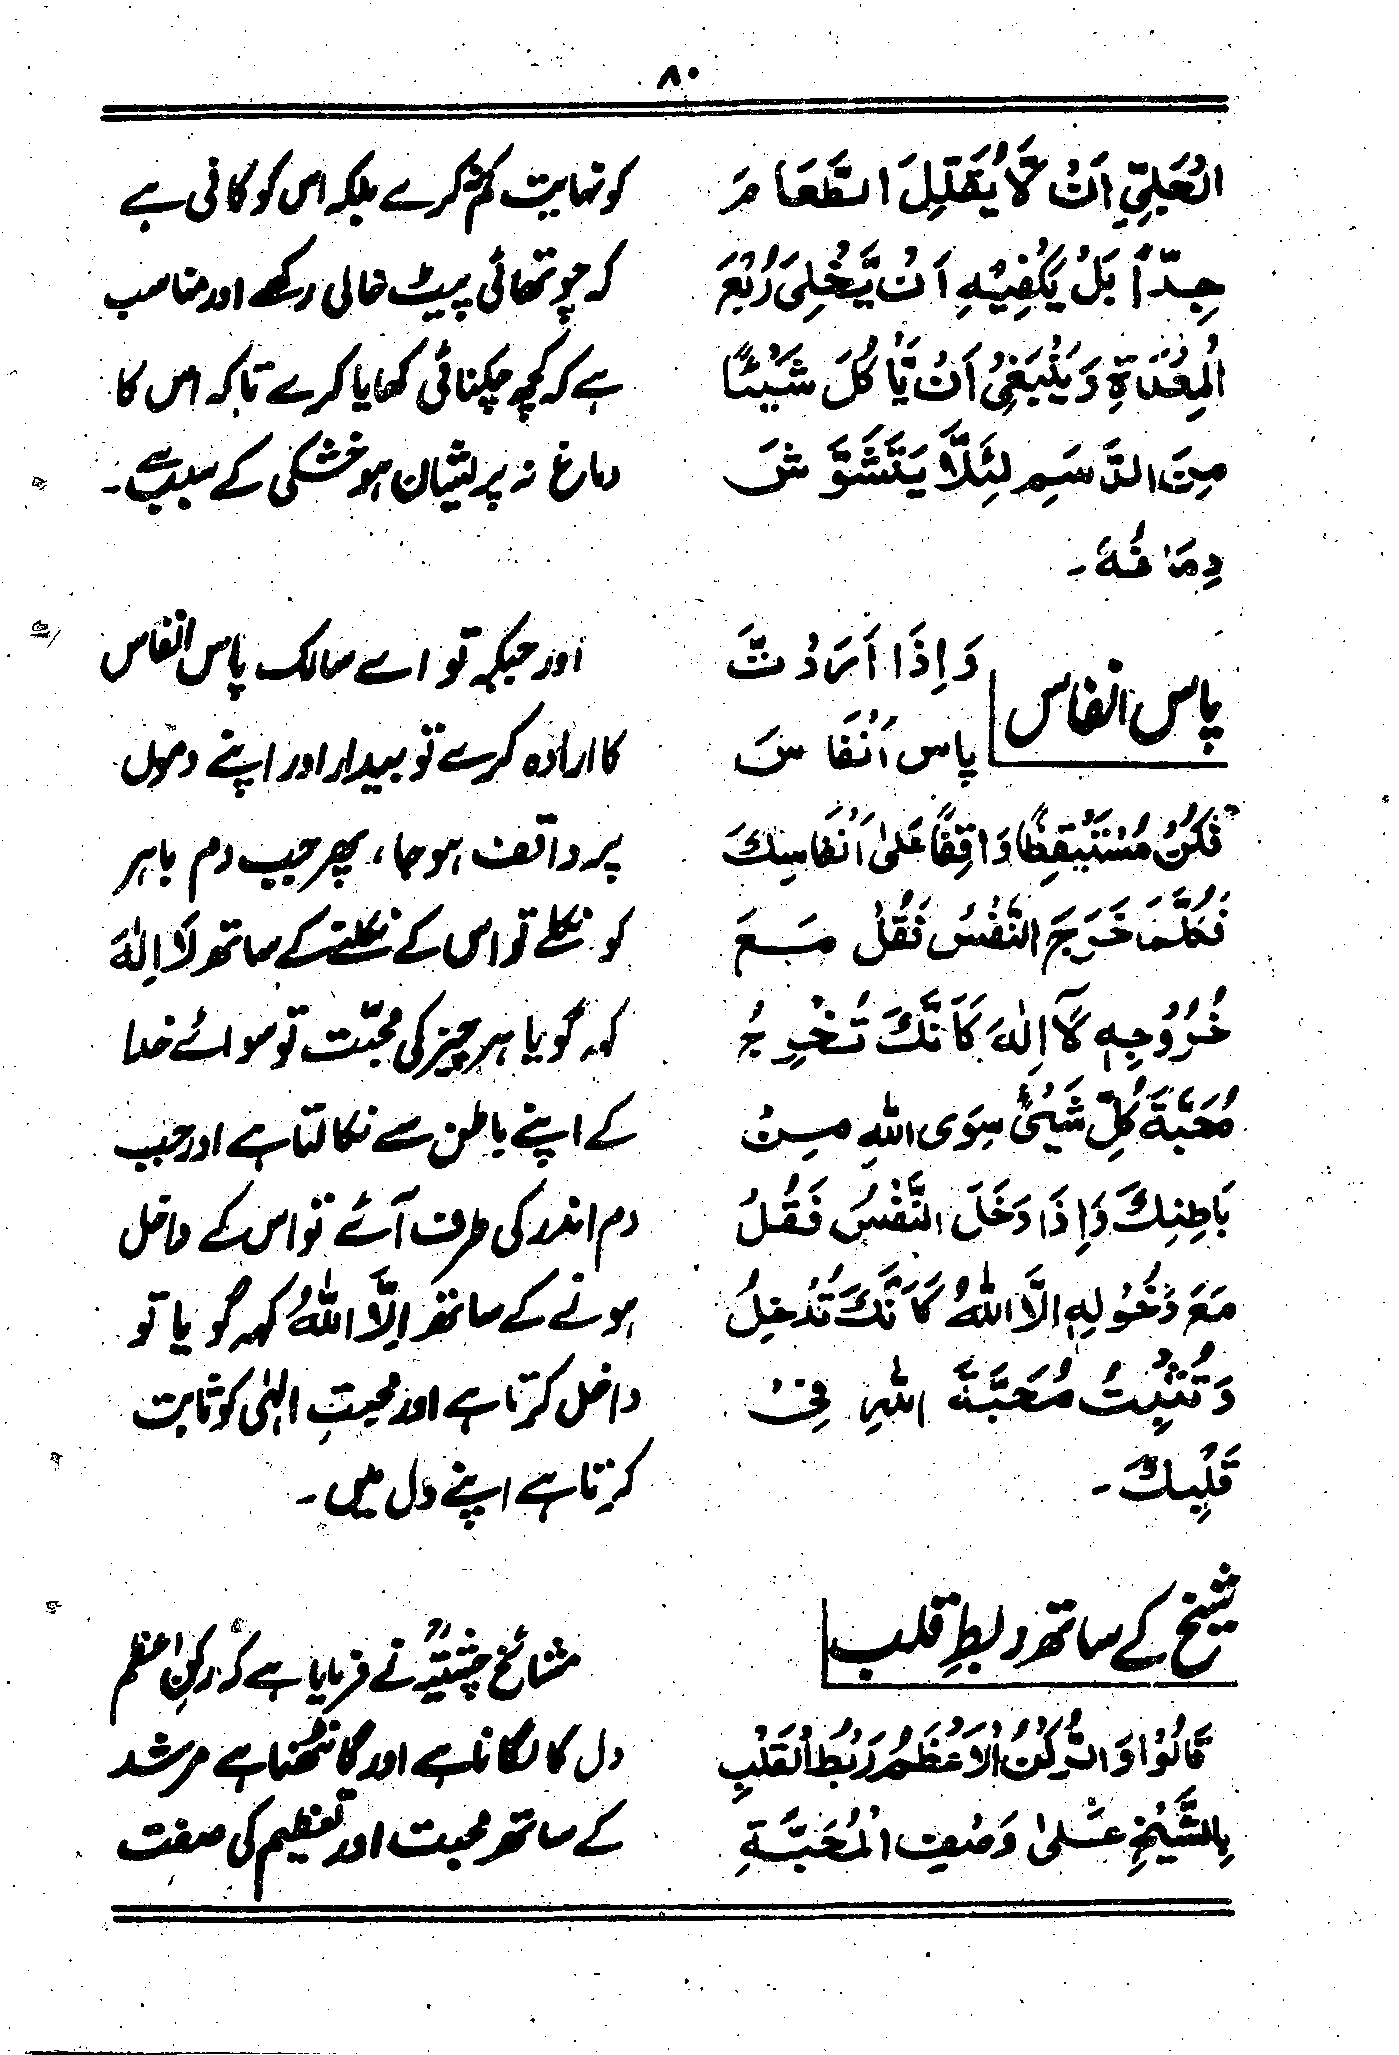 ۸۰
الْعَلِيِّ اَنْ لَّا يُقَلِّلَ الطَّعَامَ
جِدًّا بَلْ يَكْفِيْهِ اَنْ يُّخْلِیَ رُبْعَ
الْمِعْدَةِ وَيَنْبَغِیْ اَنْ يَّأْكُلَ شَيْئًا
مِنَ الدَّسَمِ لِئَلَّا يَتَشَوَّشَ
دِمَاغُهٗ۔
کو نہایت کم نہ کرے بلکہ اس کو کافی ہے
کہ چوتھائی پیٹ خالی رکھے اور مناسب
ہے کہ کچھ چکنائی کھایا کرے تاکہ اس کا
دماغ نہ پریشان ہو خشکی کے سبب سے۔
پاس انفاس
وَاِذَا اَرَدْتَّ
پاس اَنْفَاسَ
فَكُنْ مُسْتَيْقِظًا وَاقِفًا عَلٰى اَنْفَاسِكَ
فَكُلَّمَا خَرَجَ النَّفْسُ فَقُلْ مَعَ
خُرُوْجِهٖ لَآ اِلٰهَ كَاَنَّكَ تُخْرِجُ
مُحَبَّةَ كُلِّ شَيْئٍ سِوَى اللهِ مِنْ
بَاطِنِكَ وَاِذَا دَخَلَ النَّفْسُ فَقُلْ
مَعَ دُخُوْلِهٖ اِلَّا اللهُ كَاَنَّكَ تُدْخِلُ
وَتُثْبِتُ مُحَبَّةَ اللهِ فِیْ
قَلْبِكَ۔
اور جبکہ تو اے سالک پاس انفاس
کا ارادہ کرے تو بیدار اور اپنے دموں
پر واقف ہو جا، پھر جب دم باہر
کو نکلے تو اس کے نکلنے کے ساتھ لَا اِلٰهَ
کہہ گویا ہر چیز کی محبّت تو سوائے خدا
کے اپنے باطن سے نکالتا ہے اور جب
دم اندر کی طرف آئے تو اس کے داخل
ہونے کے ساتھ اِلَّا اللهُ کہہ گویا تو
داخل کرتا ہے اور محبتِ الہٰی کو ثابت
کرتا ہے اپنے دل میں۔
شیخ کے ساتھ ربطِ قلب
قَالُوْا وَالرُّكْنُ الْاَعْظَمُ رَبْطُ الْقَلْبِ
بِالشَّيْخِ عَلٰى وَصْفِ الْمُحَبَّةِ
مشائخ چشتیہؒ نے فرمایا ہے کہ رکنِ اعظم
دل کا لگانا ہے اور گانٹھنا ہے مرشد
کے ساتھ محبت اور تعظیم کی صفت